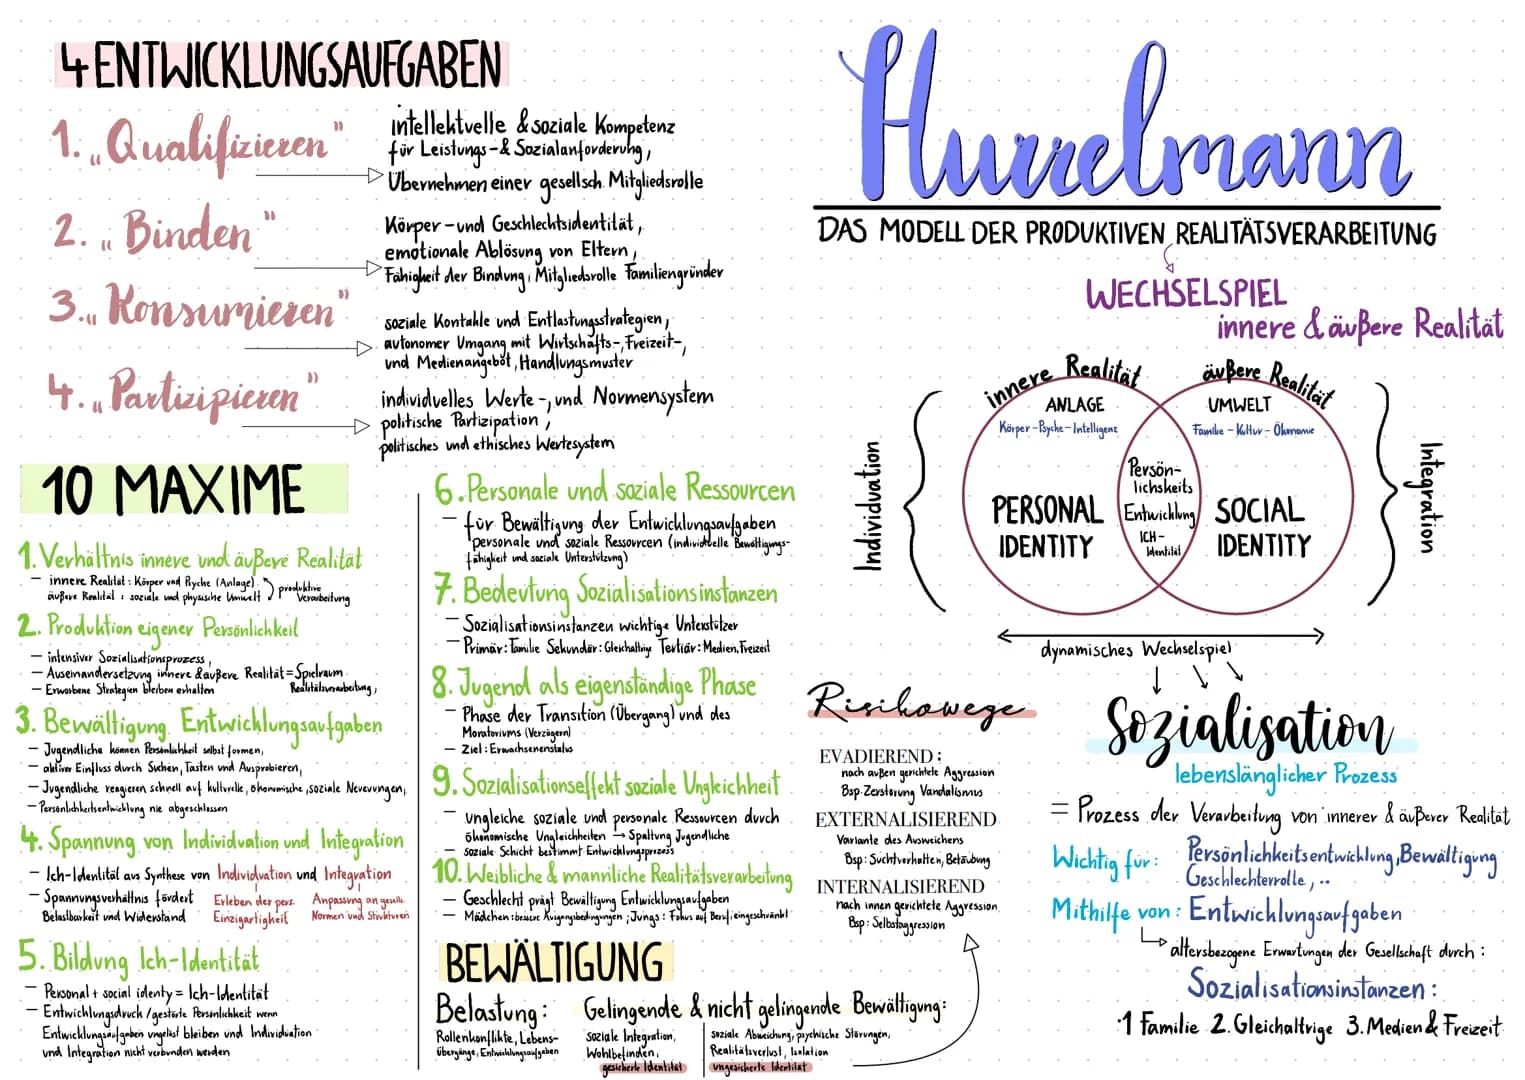 4 ENTWICKLUNGSAUFGABEN
1. „Qualifizieren"
intellektuelle & soziale Kompetenz
für Leistungs- & Sozialanforderung,
Übernehmen einer gesellsch. Mitgliedsrolle
2. „Binden"
Körper- und Geschlechtsidentität,
emotionale Ablösung von Eltern,
Fähigkeit der Bindung, Mitgliedsrolle Familiengründer
3. „Konsumieren"
soziale Kontakte und Entlastungsstrategien,
autonomer Umgang mit Wirtschafts-, Freizeit-,
und Medienangebot, Handlungsmuster
4. „Partizipieren"
individuelles Werte-, und Normensystem
politische Partizipation,
politisches und ethisches Wertesystem
10 MAXIME
1. Verhältnis innere und äußere Realität
– innere Realität: Körper und Psyche (Anlage)
äußere Realität: soziale und physische Umwelt
produktive
Verarbeitung
2. Produktion eigener Persönlichkeit
– intensiver Sozialisationsprozess,
– Auseinandersetzung innere & äußere Realität = Spielraum
Realitätsverarbeitung,
– Erworbene Strategien bleiben erhalten
3. Bewältigung Entwicklungsaufgaben
– Jugendliche können Persönlichkeit selbst formen,
– aktiver Einfluss durch Suchen, Tasten und Ausprobieren,
– Jugendliche reagieren schnell auf kulturelle, ökonomische, soziale Neuerungen,
– Persönlichkeitsentwicklung nie abgeschlossen
4. Spannung von Individuation und Integration
– Ich-Identität aus Synthese von Individuation und Integration
– Spannungsverhältnis fördert
Belastbarkeit und Widerstand
Erleben der pers.
Einzigartigkeit
Anpassung an gesells.
Normen und Strukturen
5. Bildung Ich-Identität
– Personal + social identy = Ich-Identität
– Entwicklungsdruck / gestörte Persönlichkeit wenn
Entwicklungsaufgaben ungelöst bleiben und Individuation
und Integration nicht verbunden werden
6. Personale und soziale Ressourcen
– für Bewältigung der Entwicklungsaufgaben
personale und soziale Ressourcen (individuelle Bewältigungs-
fähigkeit und soziale Unterstützung)
7. Bedeutung Sozialisationsinstanzen
– Sozialisationsinstanzen wichtige Unterstützer
– Primär: Familie Sekundär: Gleichaltrige Tertiär: Medien, Freizeit
8. Jugend als eigenständige Phase
– Phase der Transition (Übergang) und des
Moratoriums (Verzögern)
– Ziel: Erwachsenenstatus
9. Sozialisationseffekt soziale Ungleichheit
– ungleiche soziale und personale Ressourcen durch
ökonomische Ungleichheiten → Spaltung Jugendliche
– soziale Schicht bestimmt Entwicklungsprozess
10. Weibliche & männliche Realitätsverarbeitung
– Geschlecht prägt Bewältigung Entwicklungsaufgaben
– Mädchen: bessere Ausgangsbedingungen; Jungs: Fokus auf Beruf; eingeschränkt
BEWÄLTIGUNG
Belastung:
Rollenkonflikte, Lebens-
übergänge, Entwicklungsaufgaben
Gelingende & nicht gelingende Bewältigung:
soziale Integration,
Wohlbefinden,
gesicherte Identität
soziale Abweichung, psychische Störungen,
Realitätsverlust, Isolation
ungesicherte Identität
Hurrelmann
DAS MODELL DER PRODUKTIVEN REALITÄTSVERARBEITUNG
WECHSELSPIEL
innere & äußere Realität
Individuation
innere Realität
ANLAGE
Körper-Psyche-Intelligenz
PERSONAL
IDENTITY
Persön-
lichskeits
Entwicklung
ICH-
Identität
äußere Realität
UMWELT
Familie - Kultur - Ökonomie
SOCIAL
IDENTITY
Integration
dynamisches Wechselspiel
Risikowege
EVADIEREND:
nach außen gerichtete Aggression
Bsp. Zerstörung Vandalismus
EXTERNALISIEREND
Variante des Ausweichens
Bsp: Suchtverhalten, Betäubung
INTERNALISIEREND
nach innen gerichtete Aggression
Bsp: Selbstaggression
Sozialisation
lebenslänglicher Prozess
= Prozess der Verarbeitung von innerer & äußerer Realität
Wichtig für: Persönlichkeitsentwicklung, Bewältigung
Geschlechterrolle, ..
Mithilfe von: Entwicklungsaufgaben
altersbezogene Erwartungen der Gesellschaft durch:
Sozialisationsinstanzen:
1 Familie 2. Gleichaltrige 3. Medien & Freizeit